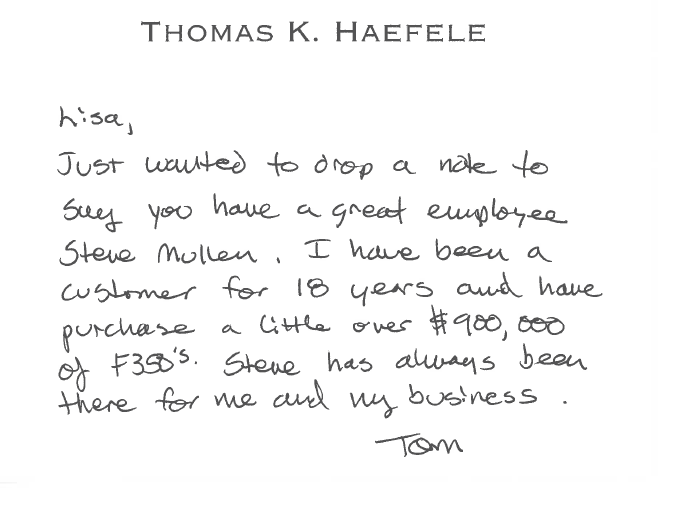 THOMAS K. HAEFELE
Lisa,
Just wanted to drop a note to
say you have a great employee
Steve Mullen. I have been a
customer for 18 years and have
purchase a little over $900,000
of F350's. Steve has always been
there for me and my business.
Tom